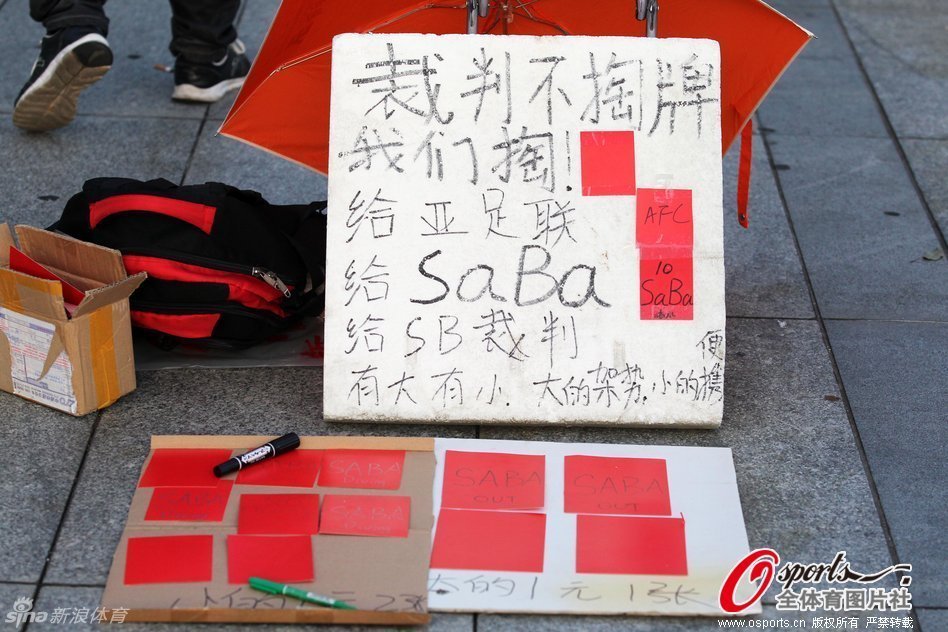 裁判不掏牌
我们掏!
给亚足联
给SaBa
给SB裁判
有大有小.大的架势.小的携便
AFC
10
SaBa
SABA
Diving
SABA
Diving
SABA
Diving
SABA
OUT
SABA
OUT
大的1元1张
sina新浪体育
Osports.cn
全体育图片社
www.osports.cn 版权所有 严禁转载